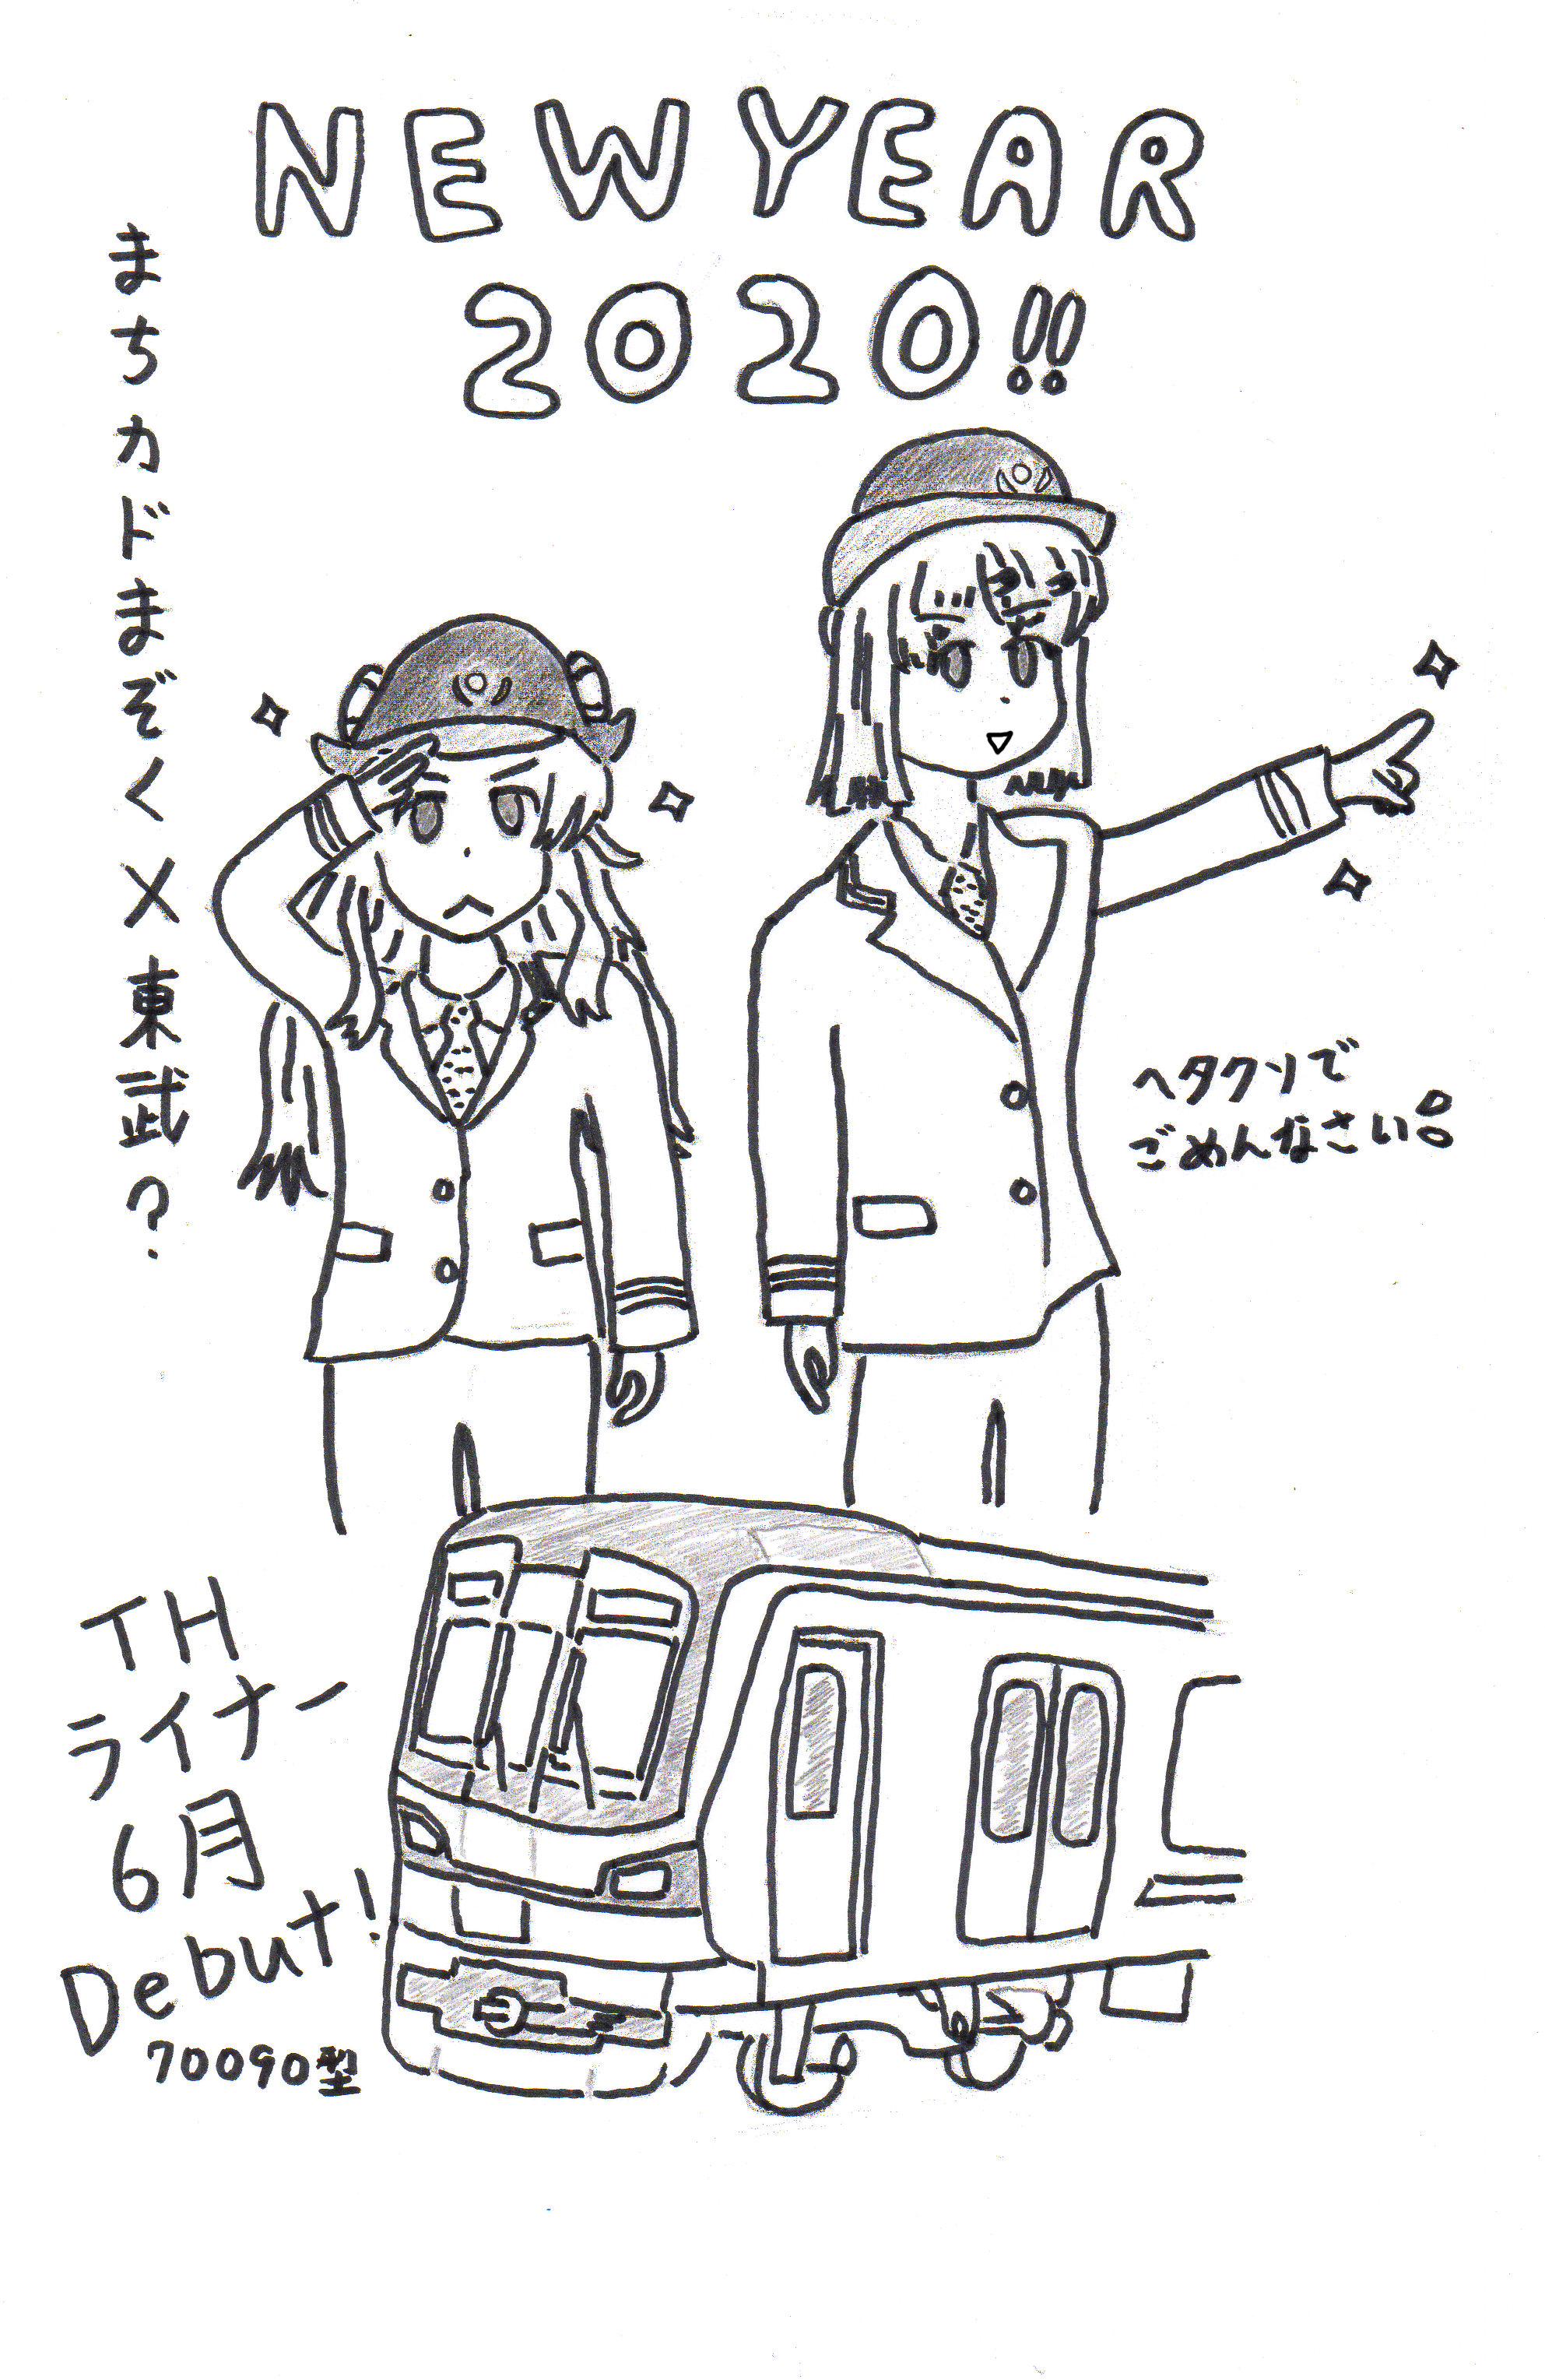 NEW YEAR
2020!!
まちカドまぞく×東武?
ヘタクソで
ごめんなさい。
TH
ライナー
6月
Debut!
70090型